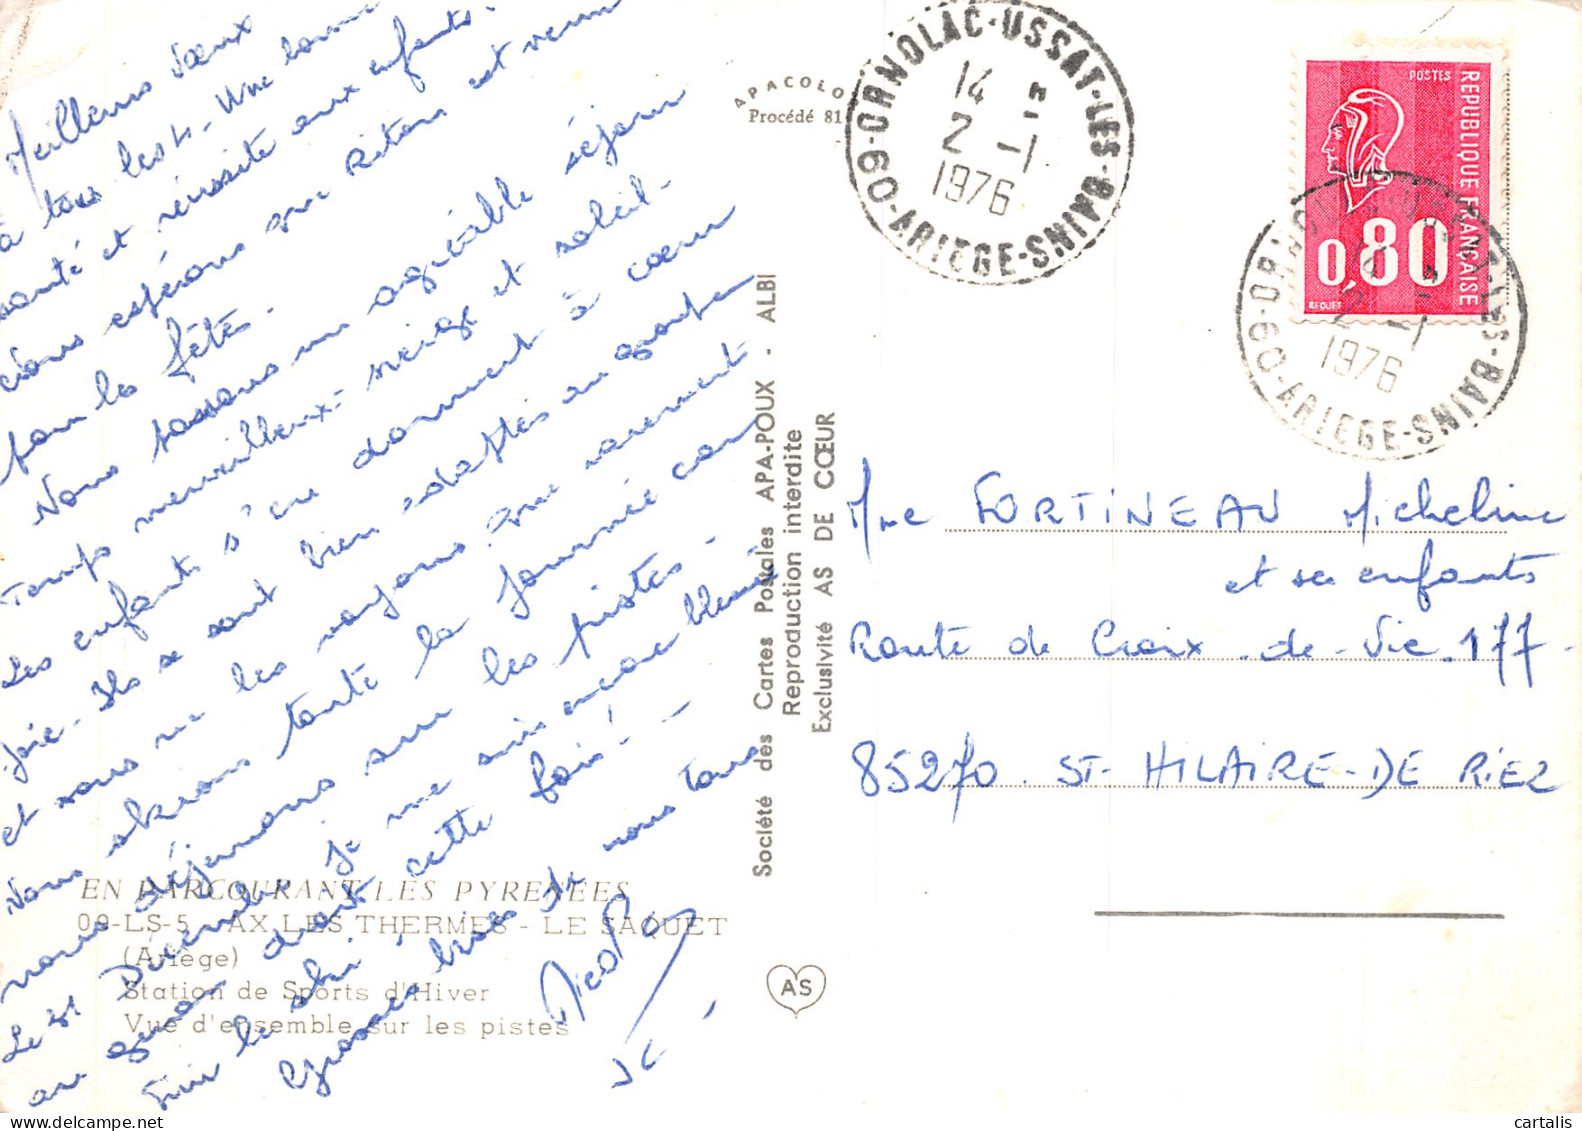 Meilleurs Vœux
à tous les 4 - Une bonne
santé et réussite aux enfants.
Nous espérons que
pour les fêtes.
Nous passons un agréable séjour
Temps merveilleux - neige et soleil -
Les enfants s'en donnent à cœur
joie - Ils se sont bien adaptés au groupe
et nous ne les voyons que rarement
Nous skions toute la journée car
nous déjeunons sur les pistes -
Le 31 Décembre je me suis encore blessé
au genou droit cette fois! -
Fini le ski!
Grosses bises de nous tous
APACOLOR
Procédé 81
ORNOLAC-USSAT-LES-BAINS
14 H
2 -1
1976
09-ARIEGE
POSTES
REPUBLIQUE FRANÇAISE
0,80
BEQUET
ORNOLAC-USSAT-LES-BAINS
14 H
2 -1
1976
09-ARIEGE
Mme FORTINEAU Micheline
et ses enfants
Route de Croix-de-Vic 177-
85270 ST-HILAIRE-DE RIEZ
Société des Cartes Postales APA-POUX - ALBI
Reproduction interdite
Exclusivité AS DE CŒUR
EN PARCOURANT LES PYRENEES
09-LS-5 - AX LES THERMES - LE SAQUET
(Ariège)
Station de Sports d'Hiver
Vue d'ensemble sur les pistes
AS
cartalis